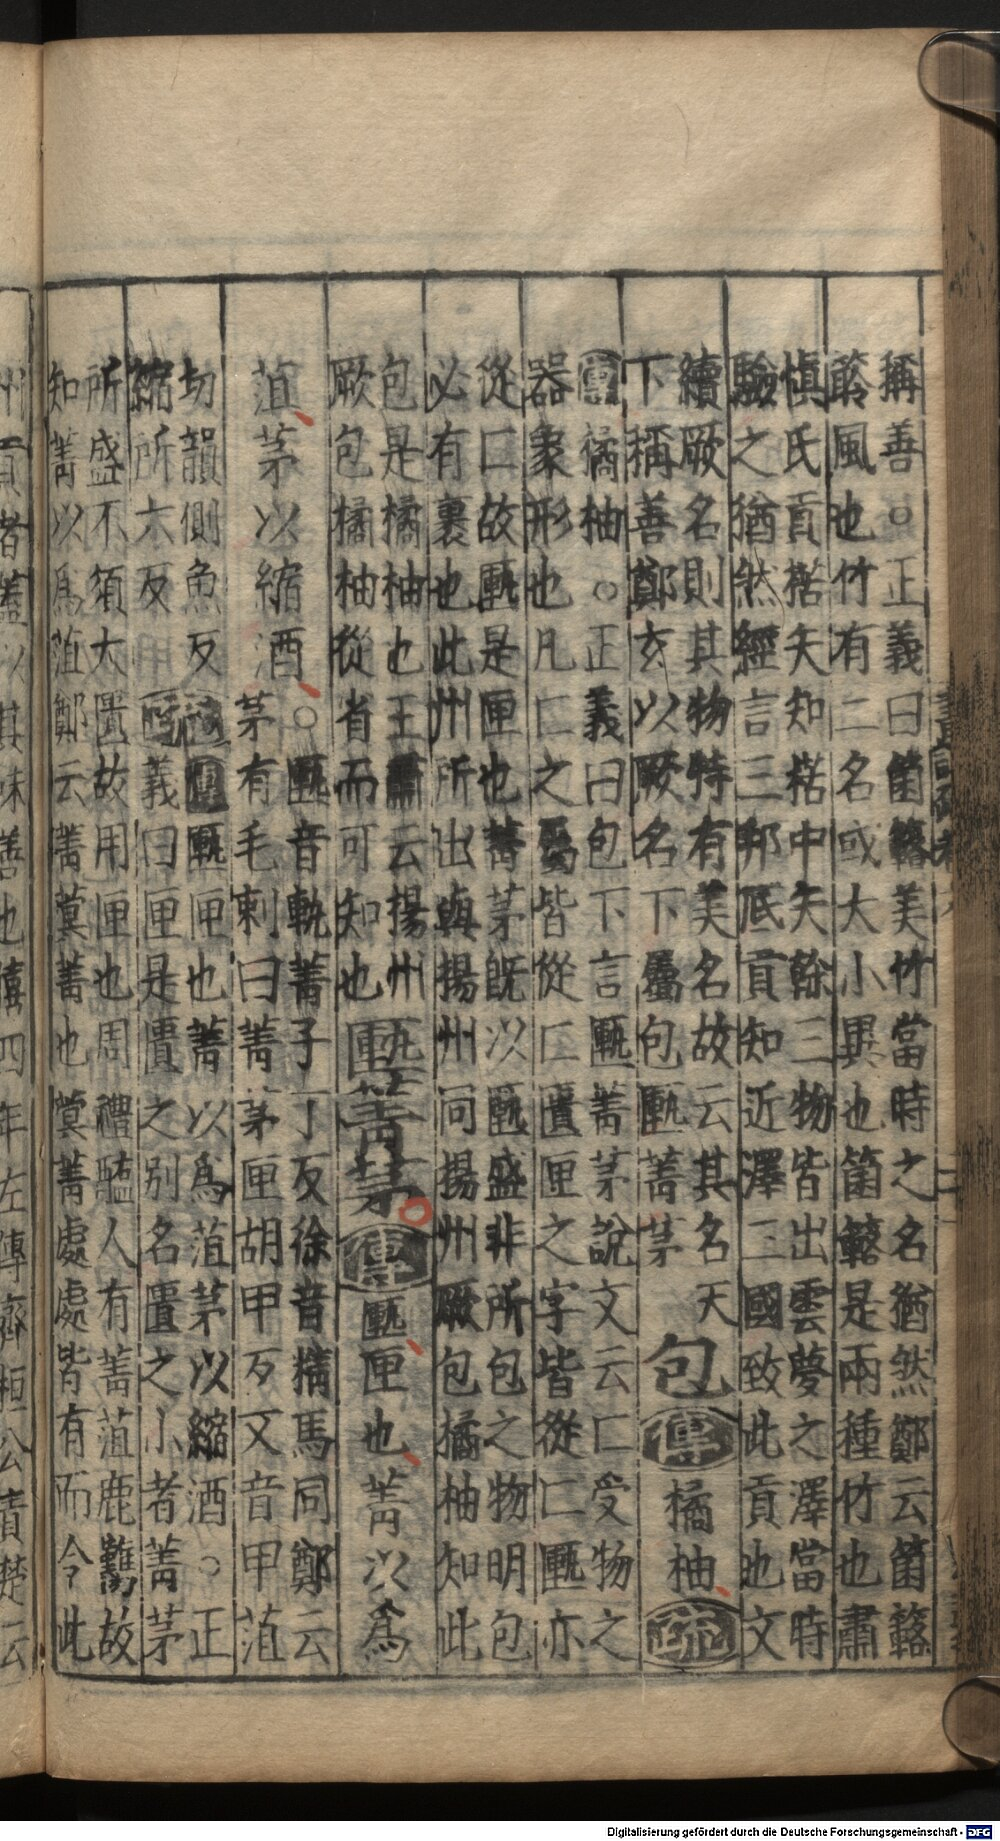 稱善○正義曰箘簵美竹當時之名猶然鄭云箘簵
簩風也竹有二名或大小異也箘簵是兩種竹也肅
慎氏貢楛矢知楛中矢榦三物皆出雲夢之澤當時
驗之猶然經言三邦厎貢知近澤三國致此貢也文
續厥名則其物特有美名故云其名天
下稱善鄭玄以厥名下屬包匭菁茅
包
傳
橘柚
疏
傳橘柚○正義曰包下言匭菁茅說文云匚受物之
器象形也凡匚之屬皆從匚匱匣之字皆從匚匭亦
從匚故匭是匣也菁茅既以匭盛非所包之物明包
必有裹也此州所出與揚州同揚州厥包橘柚知此
包是橘柚也王肅云揚州
厥包橘柚從省而可知也
匭菁茅
傳
匭匣也菁以爲
菹茅以縮酒○
匭音軌菁子丁反徐音精馬同鄭云
茅有毛刺曰菁茅匣胡甲反又音甲菹
切韻側魚反
縮所六反
疏
傳匭匣也菁以爲菹茅以縮酒○正
義曰匣是匱之別名匱之小者菁茅
所盛不須大匱故用匣也周禮醢人有菁菹鹿臡故
知菁以爲菹鄭云菁蓂菁也蓂菁處處皆有而令此
州貢者蓋以其味善也僖四年左傳齊桓公責楚云
Digitalisierung gefördert durch die Deutsche Forschungsgemeinschaft - DFG